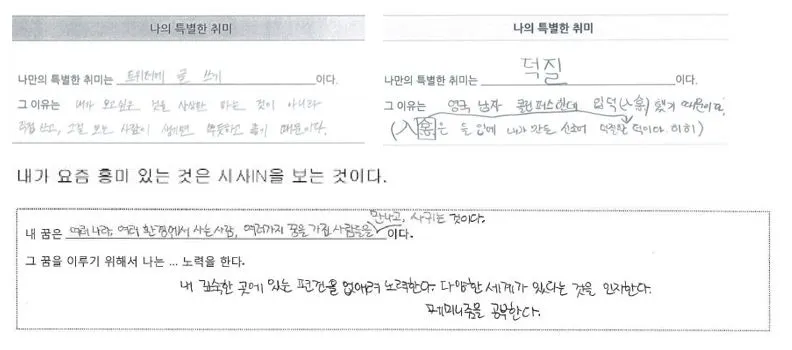 나의 특별한 취미
나만의 특별한 취미는 트위터에 글 쓰기 이다.
그 이유는 내가 보고싶은 것을 상상만 하는 것이 아니라
직접 쓰고, 그걸 보는 사람이 생기면 뿌듯하고 좋기 때문이다.
나의 특별한 취미
나만의 특별한 취미는 덕질 이다.
그 이유는 영국 남자 콜린퍼스한테 입덕(入) 했기 때문이다.
(入은 들 입에 내가 만든 신조어 덕이다 히히)
내가 요즘 흥미 있는 것은 시사IN을 보는 것이다.
내 꿈은 여러 나라, 여러 환경에서 사는 사람, 여러가지 꿈을 가진 사람들을 만나고, 사귀는 것이다. 이다.
그 꿈을 이루기 위해서 나는 ... 노력을 한다.
내 깊숙한 곳에 있는 편견을 없애려 노력한다. 다양한 세계가 있다는 것을 인지한다.
페미니즘을 공부한다.